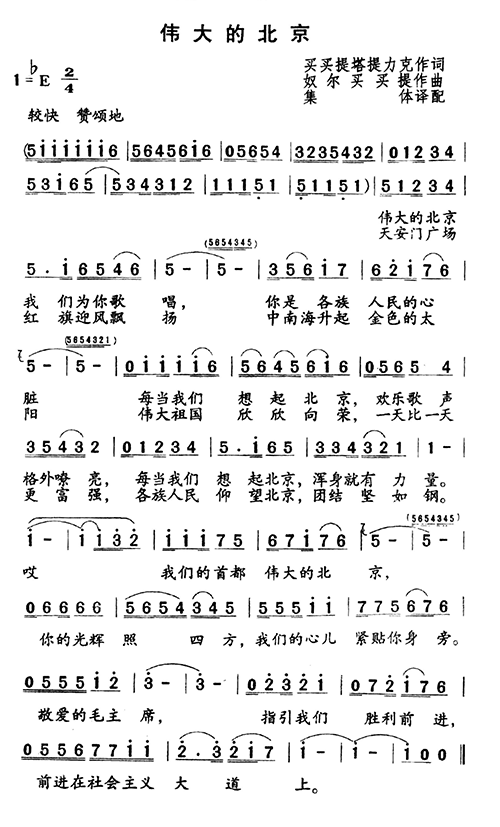 伟大的北京
1=♭E 2/4
买买提塔提力克作词
奴尔买买提作曲
集 体译配
较快 赞颂地
(5iiiiii6 | 5645616 | 05654 | 3235432 | 01234 |
53i65 | 534312 | 11151 | 51151) | 51234 |
伟大的北京
天安门广场
(5654345)
5.i6546 | 5- | 5- | 35617 | 62i76 |
我 们为你歌 唱， 你是 各族 人民的心
红 旗迎风飘 扬 中南海升起 金色的太
(5654321)
5- | 5- | 0iiii6 | 56iii6 | 0565 4 |
脏 每当我们 想起 北京，欢乐歌 声
阳 伟大祖国 欣欣 向荣，一天比一天
35432 | 01234 | 5.i65 | 334321 | 1- |
格外嘹 亮，每当我们 想 起北京，浑身就有 力 量。
更 富 强，各族人民 仰 望北京，团结 坚 如 钢。
(5654345)
i- | ii32 | iii175 | 67i76 | 5- | 5- |
哎 我们的首都 伟大的北 京，
06666 | 5654345 | 055515 | 1775676 |
你的光辉 照 四 方，我们的心儿 紧贴你身 旁。
0555i2 | 3- | 3- | 02321 | 072i76 |
敬爱的毛主 席， 指引我们 胜利前 进，
055677ii | 2.3217 | i- | i- | i00 ‖
前进在社会主义 大 道 上。